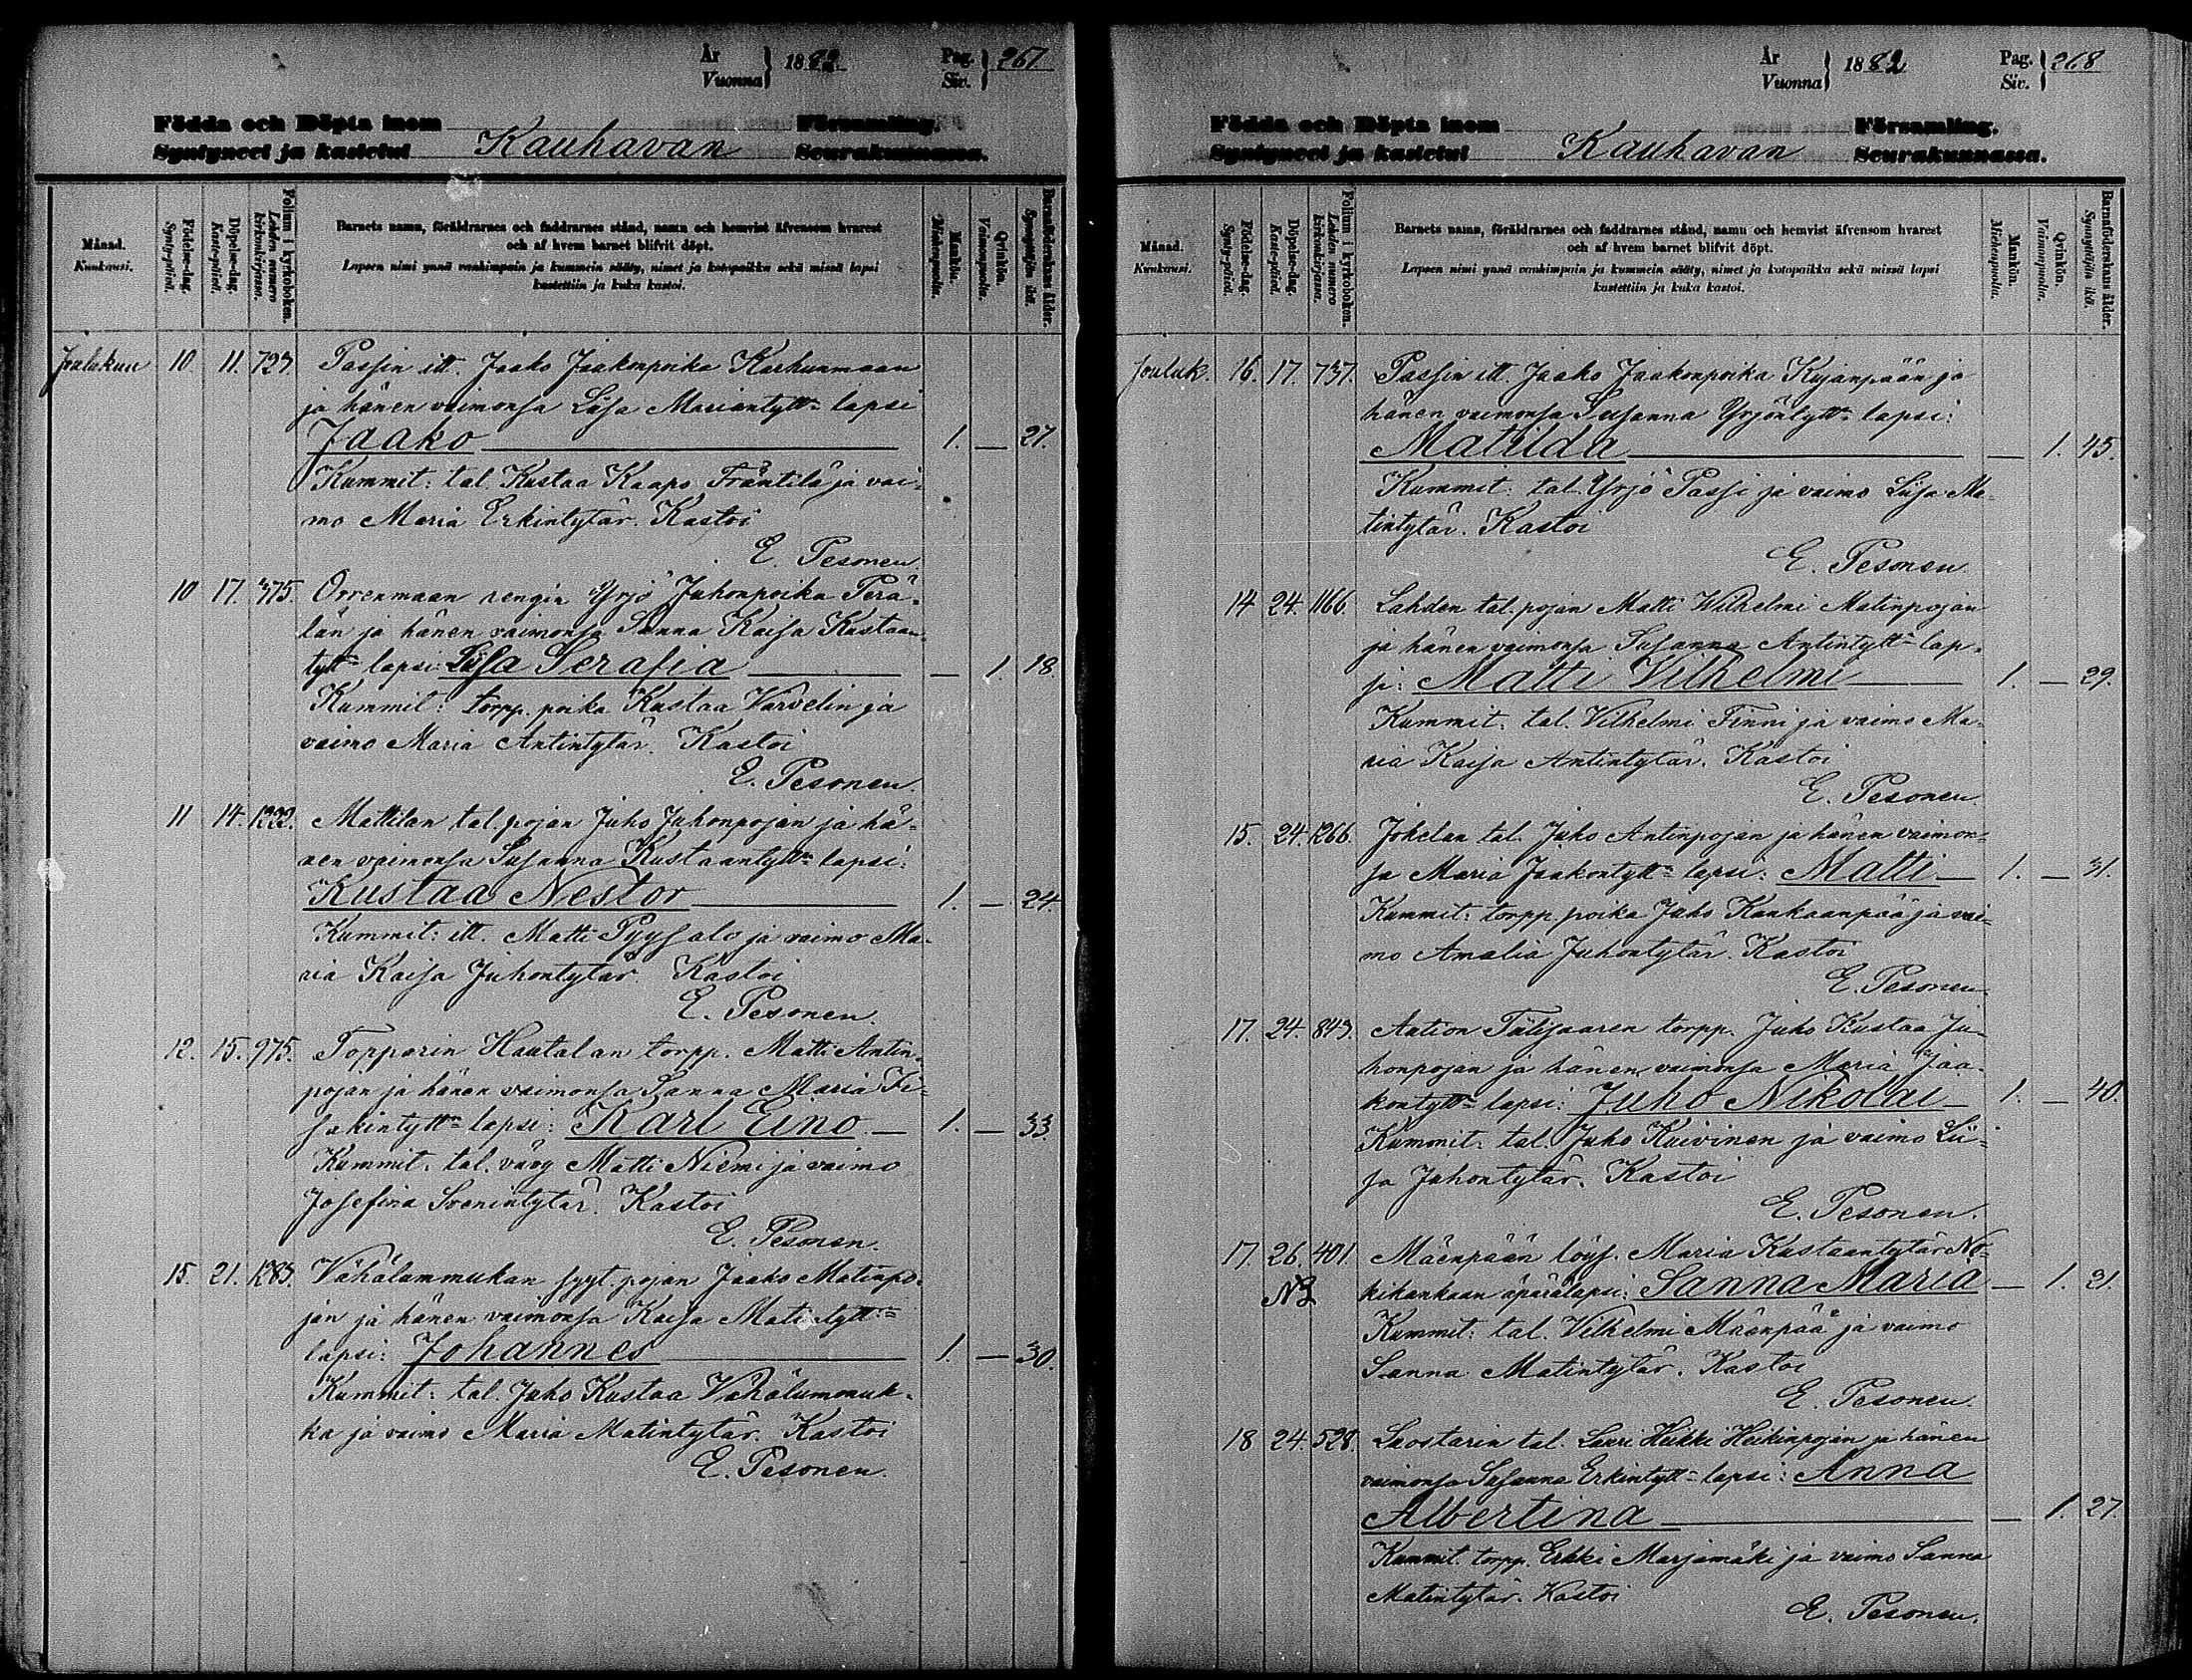 År
Vuonna } 1882. Pag.
Siv. } 267
Födda och Döpta inom Församling.
Syntyneet ja kastetut Kauhavan Seurakunnassa.
Månad.
Kuukausi.
Födelse-dag.
Synty-päivä.
Döpelse-dag.
Kaste-päivä.
Folium i kyrkoboken.
Lehden numero kirkonkirjassa.
Barnets namn, föräldrarnes och faddrarnes stånd, namn och hemvist äfvensom hvarest
och af hvem barnet blifvit döpt.
Lapsen nimi ynnä vanhimpain ja kummein sääty, nimet ja kotopaikka sekä missä lapsi
kastettiin ja kuka kastoi.
Mankön.
Miehenpuolta.
Qvinkön.
Vaimonpuolta.
Barnaföderskans ålder.
Synnyttäjän ikä.
Joulukuu 10 11. 723. Passin itt. Jaako Jaakonpoika Karhunmaan
ja hänen vaimonsa Liisa Mariantytt:n lapsi
Jaako 1. — 27.
Kummit: tal. Kustaa Kaapo Fräntilä ja vai-
mo Maria Erkintytär. Kastoi
E. Pesonen.
10 17. 375. Orrenmaan rengin Yrjö Juhonpoika Perä-
län ja hänen vaimonsa Sanna Kaisa Kustaan-
tytt:n lapsi: Liisa Serafia — 1. 18.
Kummit: torpp. poika Kustaa Varvelin ja
vaimo Maria Antintytär. Kastoi
E. Pesonen.
11 14. 1222. Mattilan tal. pojan Juho Juhonpojan ja hä-
nen vaimonsa Susanna Kustaantytt:n lapsi:
Kustaa Nestor 1. — 24.
Kummit: itt. Matti Pyysalo ja vaimo Ma-
ria Kaisa Juhontytär. Kastoi
E. Pesonen.
12. 15. 975. Topparin Hautalan torpp. Matti Antin-
pojan ja hänen vaimonsa Sanna Maria Ii-
sakintytt:n lapsi: Karl Eino — 1. — 33.
Kummit: tal. vävy Matti Niemi ja vaimo
Josefina Svenintytär. Kastoi
E. Pesonen.
15. 21. 1283. Vähälummukan syyt. pojan Jaako Matinpo-
jan ja hänen vaimonsa Kaisa Matintytt:n
lapsi: Johannes 1. — 30.
Kummit: tal. Juho Kustaa Vähälummuk-
ka ja vaimo Maria Matintytär. Kastoi
E. Pesonen.
År
Vuonna } 1882 Pag.
Siv. } 268
Födda och Döpta inom Församling.
Syntyneet ja kastetut Kauhavan Seurakunnassa.
Månad.
Kuukausi.
Födelse-dag.
Synty-päivä.
Döpelse-dag.
Kaste-päivä.
Folium i kyrkoboken.
Lehden numero kirkonkirjassa.
Barnets namn, föräldrarnes och faddrarnes stånd, namn och hemvist äfvensom hvarest
och af hvem barnet blifvit döpt.
Lapsen nimi ynnä vanhimpain ja kummein sääty, nimet ja kotopaikka sekä missä lapsi
kastettiin ja kuka kastoi.
Mankön.
Miehenpuolta.
Qvinkön.
Vaimonpuolta.
Barnaföderskans ålder.
Synnyttäjän ikä.
Jouluk. 16. 17. 737. Passin itt. Jaako Jaakonpoika Kujanpään ja
hänen vaimonsa Susanna Yrjöntytt:n lapsi:
Matilda — 1. 45.
Kummit: tal. Yrjö Passi ja vaimo Liisa Ma-
tintytär. Kastoi
E. Pesonen.
14 24. 1166. Lahden tal. pojan Matti Wilhelmi Matinpojan
ja hänen vaimonsa Susanna Antintytt:n lap-
si: Matti Vilhelmi 1. — 29.
Kummit: tal. Vilhelmi Finni ja vaimo Ma-
ria Kaisa Antintytär. Kastoi
E. Pesonen.
15. 24. 1266. Jokelan tal. Juho Antinpojan ja hänen vaimon-
sa Maria Jaakontytt:n lapsi: Matti — 1. — 31.
Kummit: torpp. poika Juho Kankaanpää ja vai-
mo Amalia Juhontytär. Kastoi
E. Pesonen.
17. 24. 843. Aution torpp. Juho Kustaa Ju-
honpojan ja hänen vaimonsa Maria Jaa-
kontytt:n lapsi: Juho Nikolai 1. — 40.
Kummit: tal. Juho Kuivinen ja vaimo Lii-
sa Juhontytär. Kastoi
E. Pesonen.
17. 26. 401. Mäenpään löys. Maria Kustaantytär No-
kikankaan äpärälapsi: Sanna Maria — 1. 21.
Kummit: tal. Vilhelmi Mäenpää ja vaimo
Sanna Matintytär. Kastoi
E. Pesonen.
18 24. 528. Luostarin tal. Lauri Heikki Heikinpojan ja hänen
vaimonsa Susanna Erkintytt:n lapsi: Anna
Albertina — 1. 27.
Kummit: torpp. Erkki Marjamäki ja vaimo Sanna
Matintytär. Kastoi
E. Pesonen.